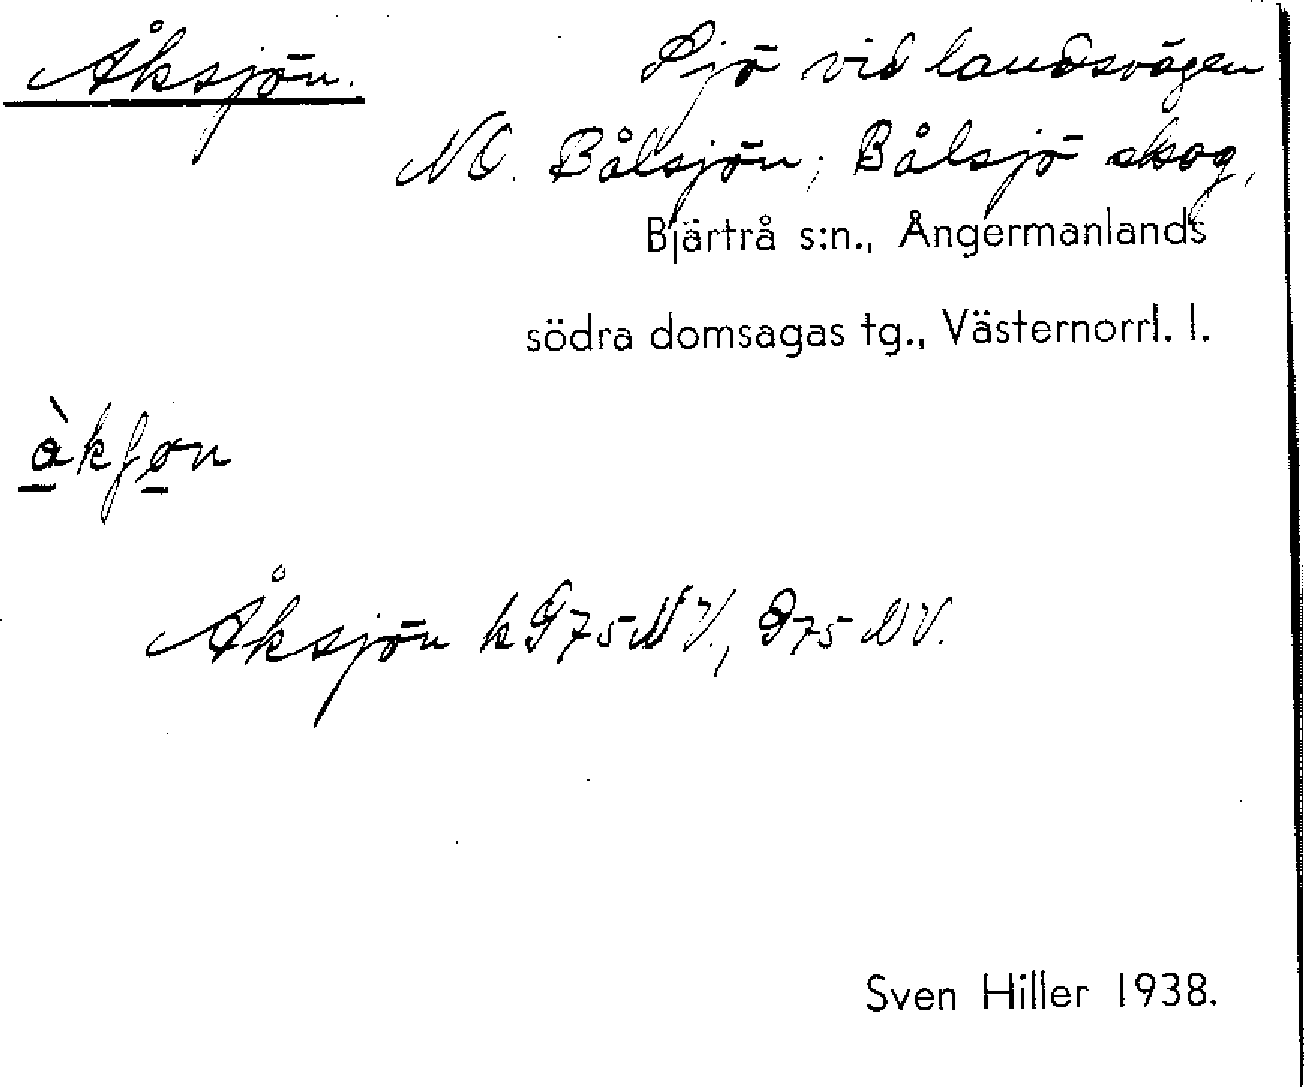 Åksjön. Sjö vid landsvägen
NO. Bålsjön; Bålsjö skog,
Bjärtrå s:n., Ångermanlands
södra domsagas tg., Västernorrl. l.
Åksjön k G75NV, 975 NV.
Sven Hiller 1938.